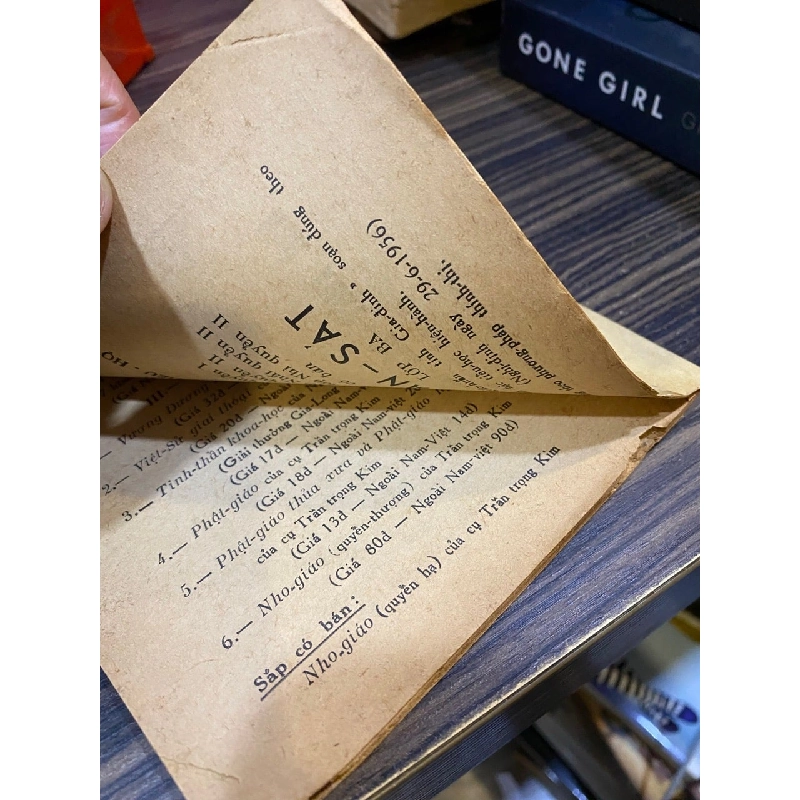 GONE GIRL
N - SÁT
LỚP BA
Gia-đình » soạn đúng theo
tiểu-học hiện-hành.
(Nghị-định ngày 29-6-1956)
theo phương-pháp thính-thị,
quyển II
quyển II
Vương Dương
(Giá 32đ
2.— Việt-Sử giai thoại
(Giá 20đ — Ngoài Nam-việt
3.— Tinh-thần khoa-học của
(Giải thưởng Gia-Long
(Giá 17đ — Ngoài Nam-việt
4.— Phật-giáo của cụ Trần trọng Kim
(Giá 18đ — Ngoài Nam-việt
5.— Phật-giáo thủa xưa và Phật-giáo
của cụ Trần trọng Kim
(Giá 13đ — Ngoài Nam-Việt 14đ)
6.— Nho-giáo (quyển-thượng) của Trần trọng Kim
(Giá 80đ — Ngoài Nam-việt 90đ)
Sắp có bán :
Nho-giáo (quyển hạ) của cụ Trần trọng Kim